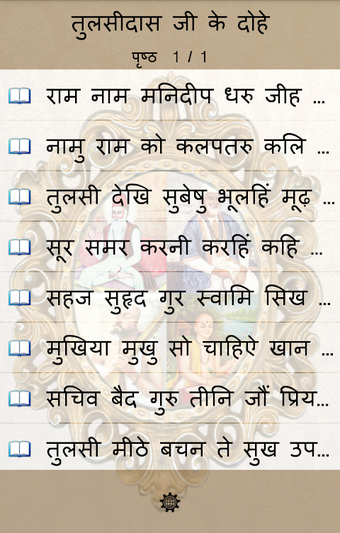 तुलसीदास जी के दोहे
पृष्ठ 1 / 1
राम नाम मनिदीप धरु जीह ...
नामु राम को कलपतरु कलि ...
तुलसी देखि सुबेषु भूलहिं मूढ़ ...
सूर समर करनी करहिं कहि ...
सहज सुहृद गुर स्वामि सिख ...
मुखिया मुखु सो चाहिऐ खान ...
सचिव बैद गुरु तीनि जौं प्रिय...
तुलसी मीठे बचन ते सुख उप...